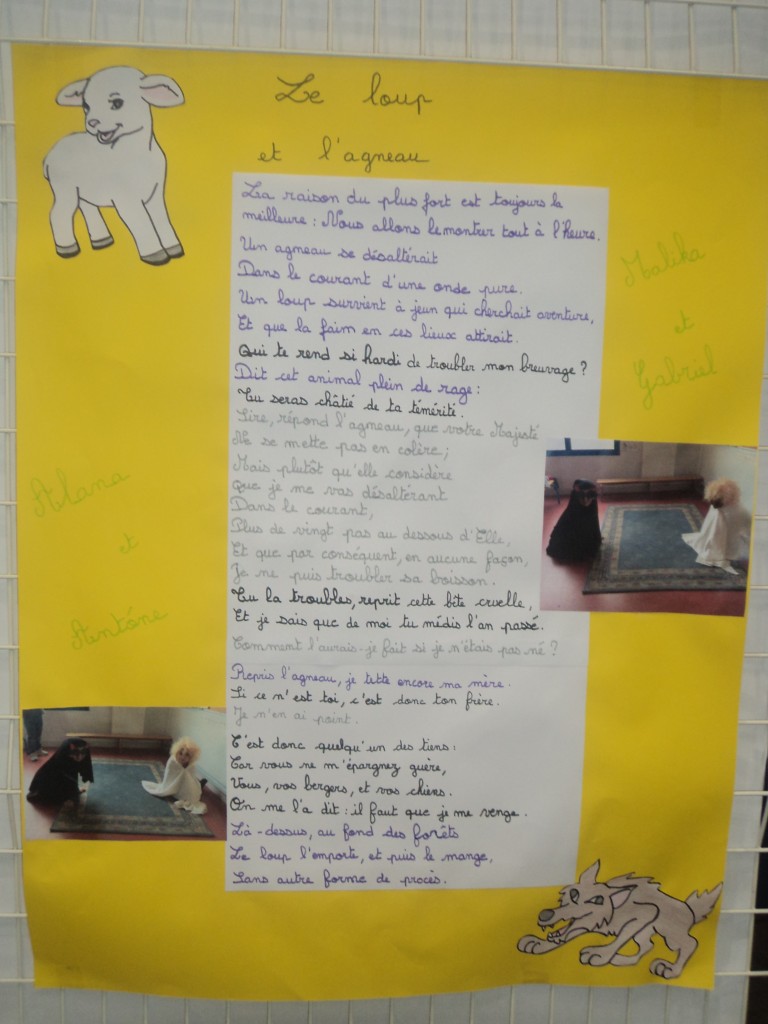 Le loup
et l'agneau
La raison du plus fort est toujours la
meilleure : Nous allons le montrer tout à l'heure.
Un agneau se désaltérait
Dans le courant d'une onde pure.
Un loup survient à jeun qui cherchait aventure,
Et que la faim en ces lieux attirait.
Qui te rend si hardi de troubler mon breuvage ?
Dit cet animal plein de rage :
Tu seras châtié de ta témérité.
Sire, répond l'agneau, que votre Majesté
Ne se mette pas en colère ;
Mais plutôt qu'elle considère
Que je me vas désaltérant
Dans le courant,
Plus de vingt pas au dessous d'Elle,
Et que par conséquent, en aucune façon,
Je ne puis troubler sa boisson.
Tu la troubles, reprit cette bête cruelle,
Et je sais que de moi tu médis l'an passé.
Comment l'aurais-je fait si je n'étais pas né ?
Repris l'agneau, je tette encore ma mère.
Si ce n'est toi, c'est donc ton frère.
Je n'en ai point.
C'est donc quelqu'un des tiens :
Car vous ne m'épargnez guère,
Vous, vos bergers, et vos chiens.
On me l'a dit : il faut que je me venge.
Là-dessus, au fond des forêts
Le loup l'emporte, et puis le mange,
Sans autre forme de procès.
Malika
et
Gabriel
Alana
et
Antóne